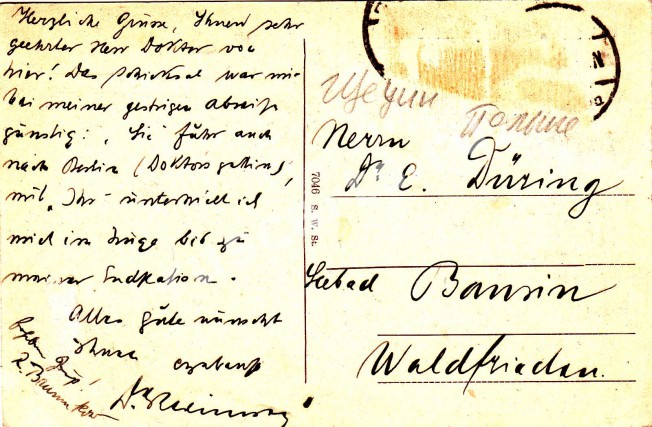 Herzliche Grüsse, Ihnen sehr
geehrter Herr Doktor von
hier! Das Schicksal war mir
bei meiner gestrigen Abreise
günstig: Sie fuhr auch
nach Berlin (Doktors gattin)
mit. Ihr unterhielt ich
mich im Zuge bis zu
meiner Endstation.
Alles gute wünscht
Ihnen
ergebenst
Dr
Щецин
Польше
Herrn
Dr E. Düring
Seebad Bansin
Waldfrieden.
7046 S. W. St.